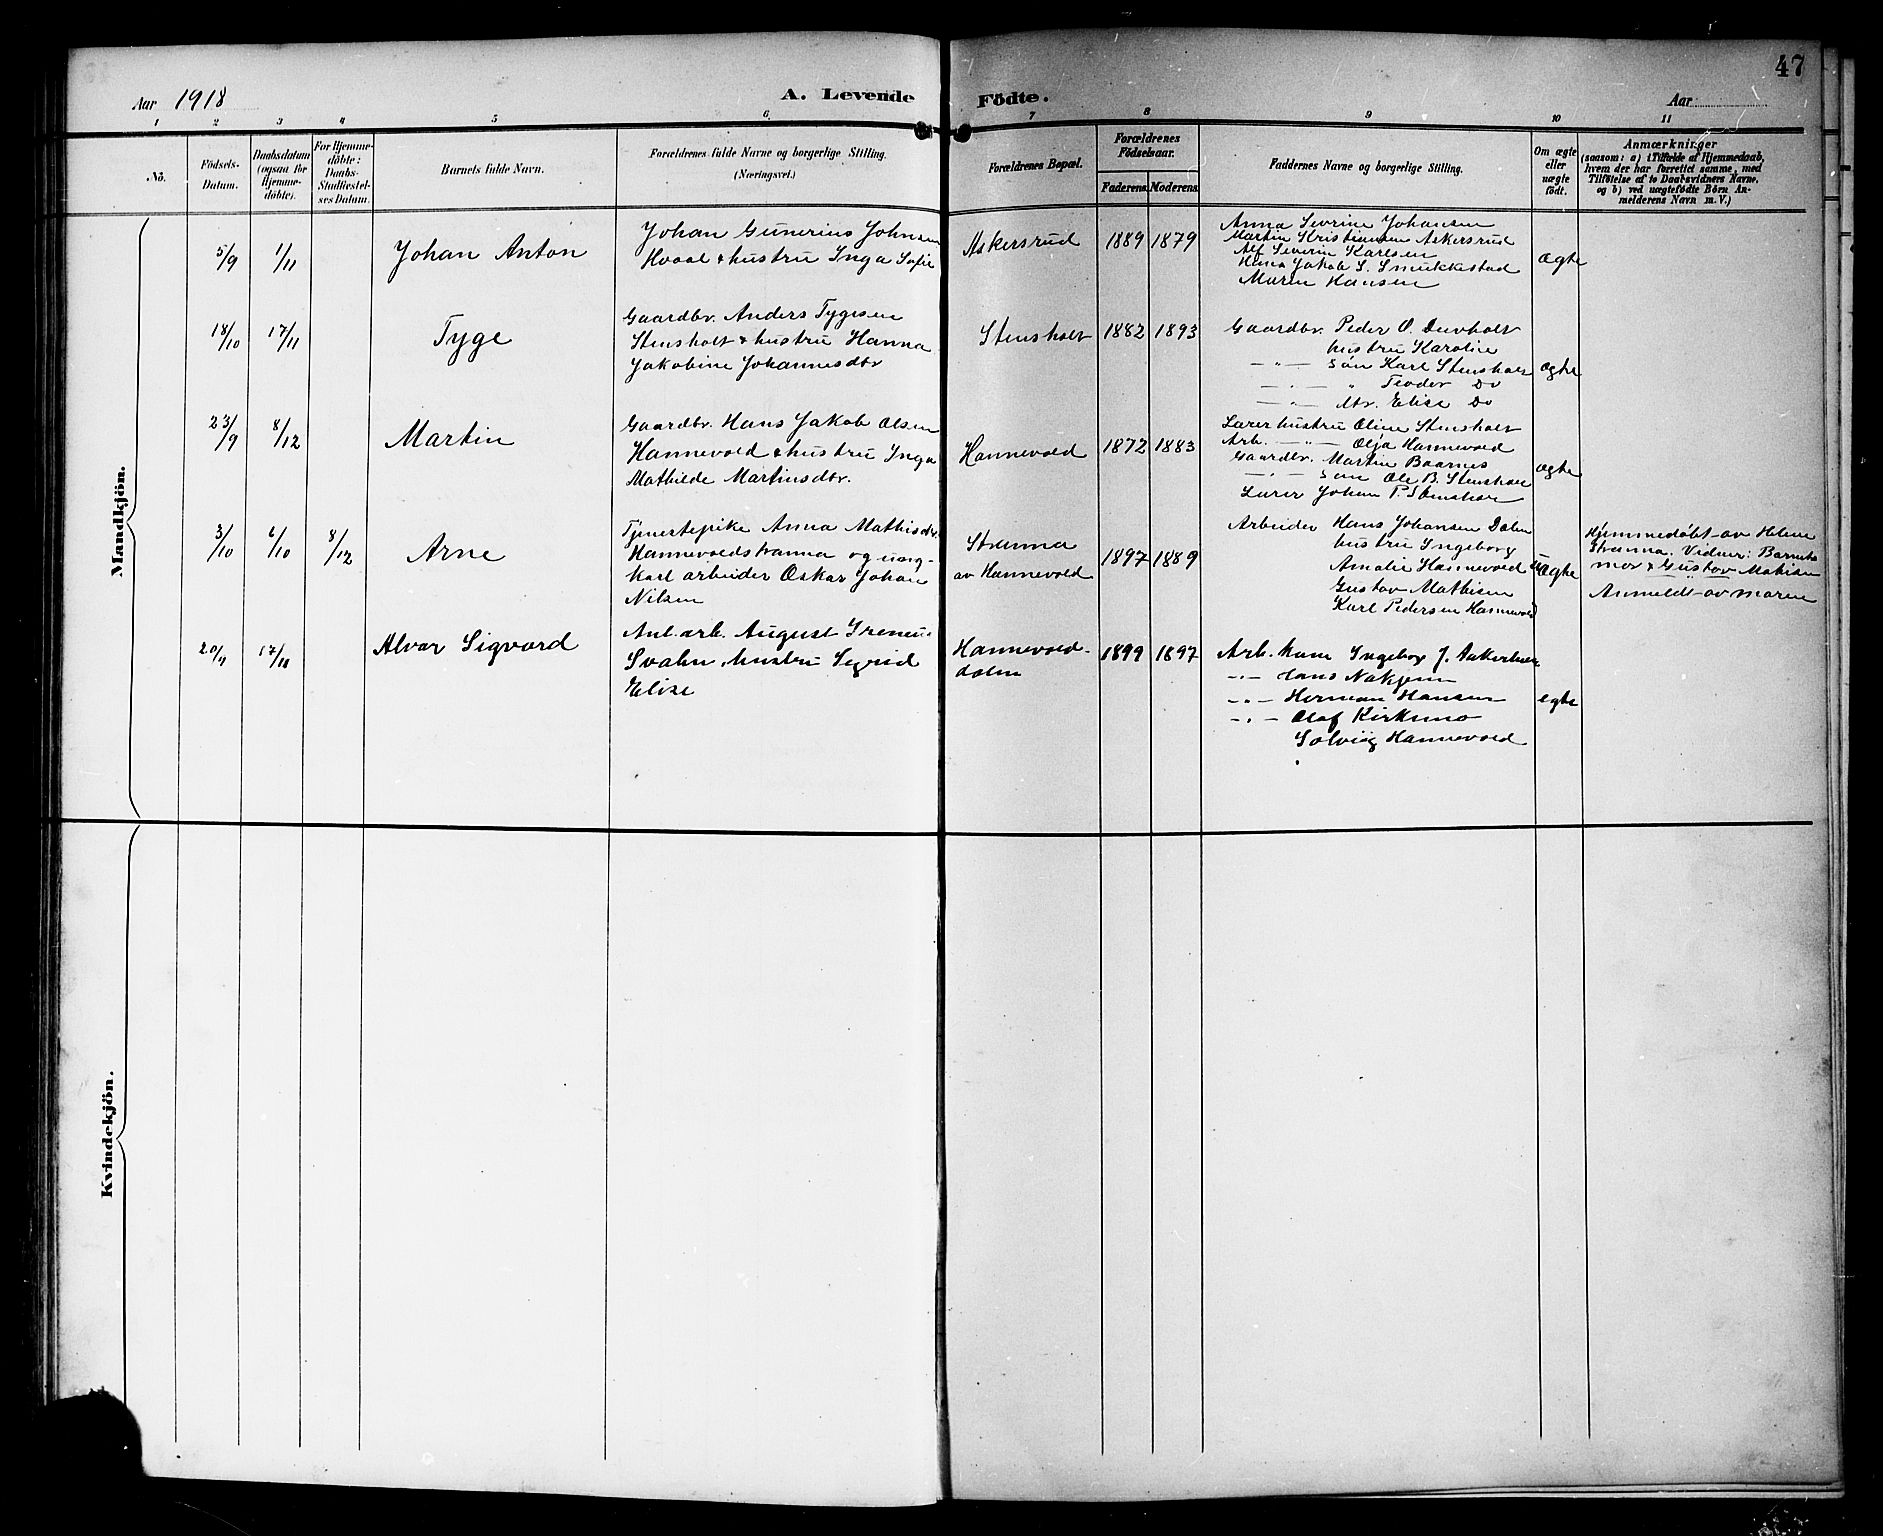 47
Aar 1918
A. Levende
Födte.
Aar
1 2 3 4 5 6 7 8 9 10 11
No.
Födsels-
Datum.
Daabsdatum
(ogsaa for
Hjemme-
döbte).
For Hjemme-
döbte:
Daabs-
Stadfæstel-
ses Datum.
Barnets fulde Navn.
Forældrenes fulde Navne og borgerlige Stilling.
(Næringsvei.)
Forældrenes Bopæl.
Forældrenes
Födselsaar.
Faderens. Moderens.
Faddernes Navne og borgerlige Stilling.
Om ægte
eller
uægte
født.
Anmærkninger
(saasom: a) i Tilfælde af Hjemmedaab,
hvem der har forrettet samme, med
Tilföielse af to Daabsvidners Navne,
og b) ved uægtefödte Börn An-
melderens Navn m. V.)
Mandkjön.
5/9 1/11
Johan Anton
Johan Gunerius Johnsen
Hvaal & hustru Inga Sofie
Askersrud
1889 1879
Anna Sevrine Johansen
Martin Kristiansen Askersrud
Alf Severin Karlsen
Hans Jakob S. Smukkestad
Maren Hansen
Ægte
18/10 17/11
Tyge
Gaardbr. Anders Tygesen
Stensholt & hustru Hanna
Jakobine Johannesdtr
Stensholt
1882 1893
Gaardbr. Peder O. Duvholt
hustru Karoline
— " — Søn Karl Stensholt
— " — " Teodor Do
— " — dtr. Elise Do
ægte
23/9 8/12
Martin
Gaardbr. Hans Jakob Olsen
Hannevold & hustru Inga
Mathilde Martinsdtr.
Hannevold
1872 1883
Lærer hustru Oline Stensholt
Arb. — " — Olja Hannevold
Gaardbr. Martin Baarnes
— " — Søn Ole B. Stensholt
Lærer Johan P. Stensholt
ægte
3/10 6/10 8/12
Arne
Tjenestepike Anna Mathisdtr.
Hannevoldstranna og ung-
karl arbeider Oskar Johan
Nilsen
Stranna
av Hannevold
1897 1889
Arbeider Hans Johansen Dalen
hustru Ingeborg
Amalie Hannevold
Gustav Mathisen
Karl Pedersen Hannevold
uægte
Hjemmedøbt av Helene
Stranna. Vidner: Barnets
mor & Gustav Mathisen
Anmeldt av moren
20/9 17/11
Alvar Sigvard
Anl. arb. August Ireneus
Svahn, hustru Sigrid
Elise
Hannevold-
dalen
1899 1897
Arb. kone Ingeborg J.
— " — Hans Nakjem
— " — Herman Hansen
— " — Olaf Kirkemo
Solveig Hannevold
egte
Kvindekjön.